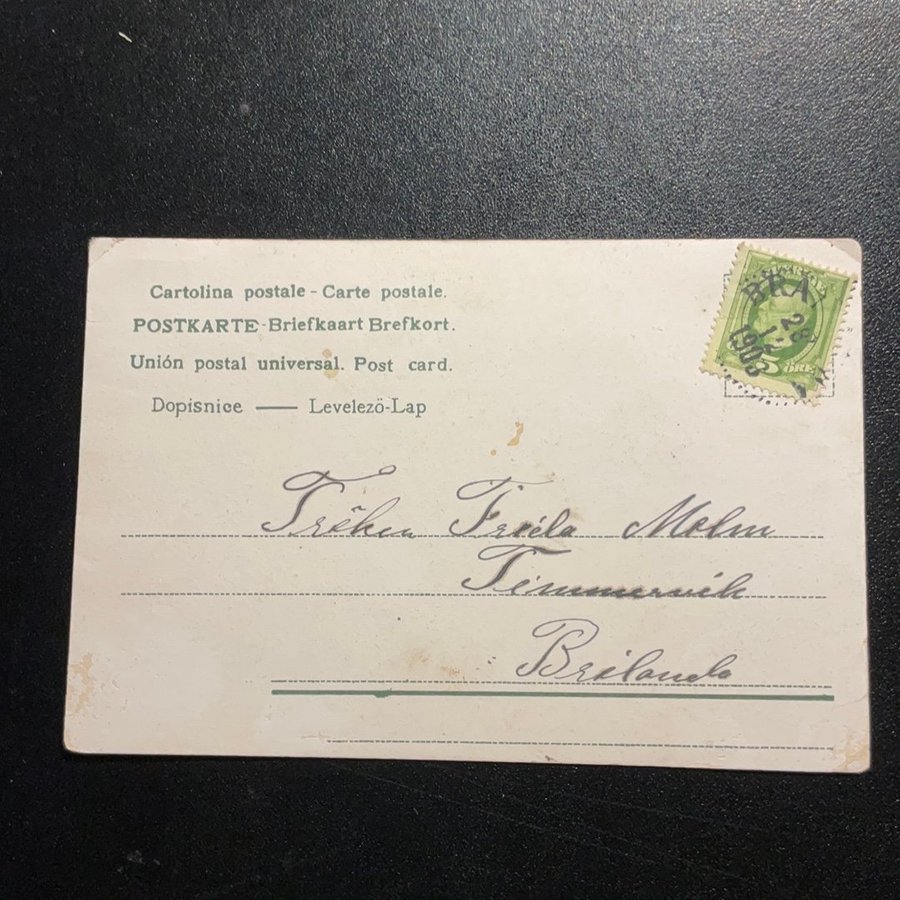 Cartolina postale - Carte postale.
POSTKARTE - Briefkaart Brefkort.
Unión postal universal. Post card.
Dopisnice — Levelező-Lap
BRÅ
28
12
1903
5 ÖRE
Fröken Frida Malm
Timmervik
Brålanda